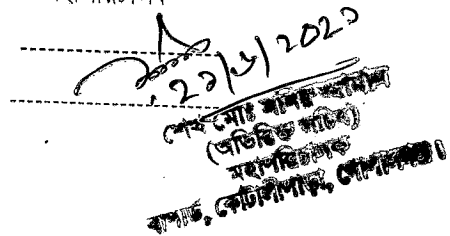 ২১/৬/২০২১
শেখ মোঃ
(অতিরিক্ত সচিব)
মহাপরিচালক
বাপার্ড, কোটালীপাড়া, গোপালগঞ্জ।